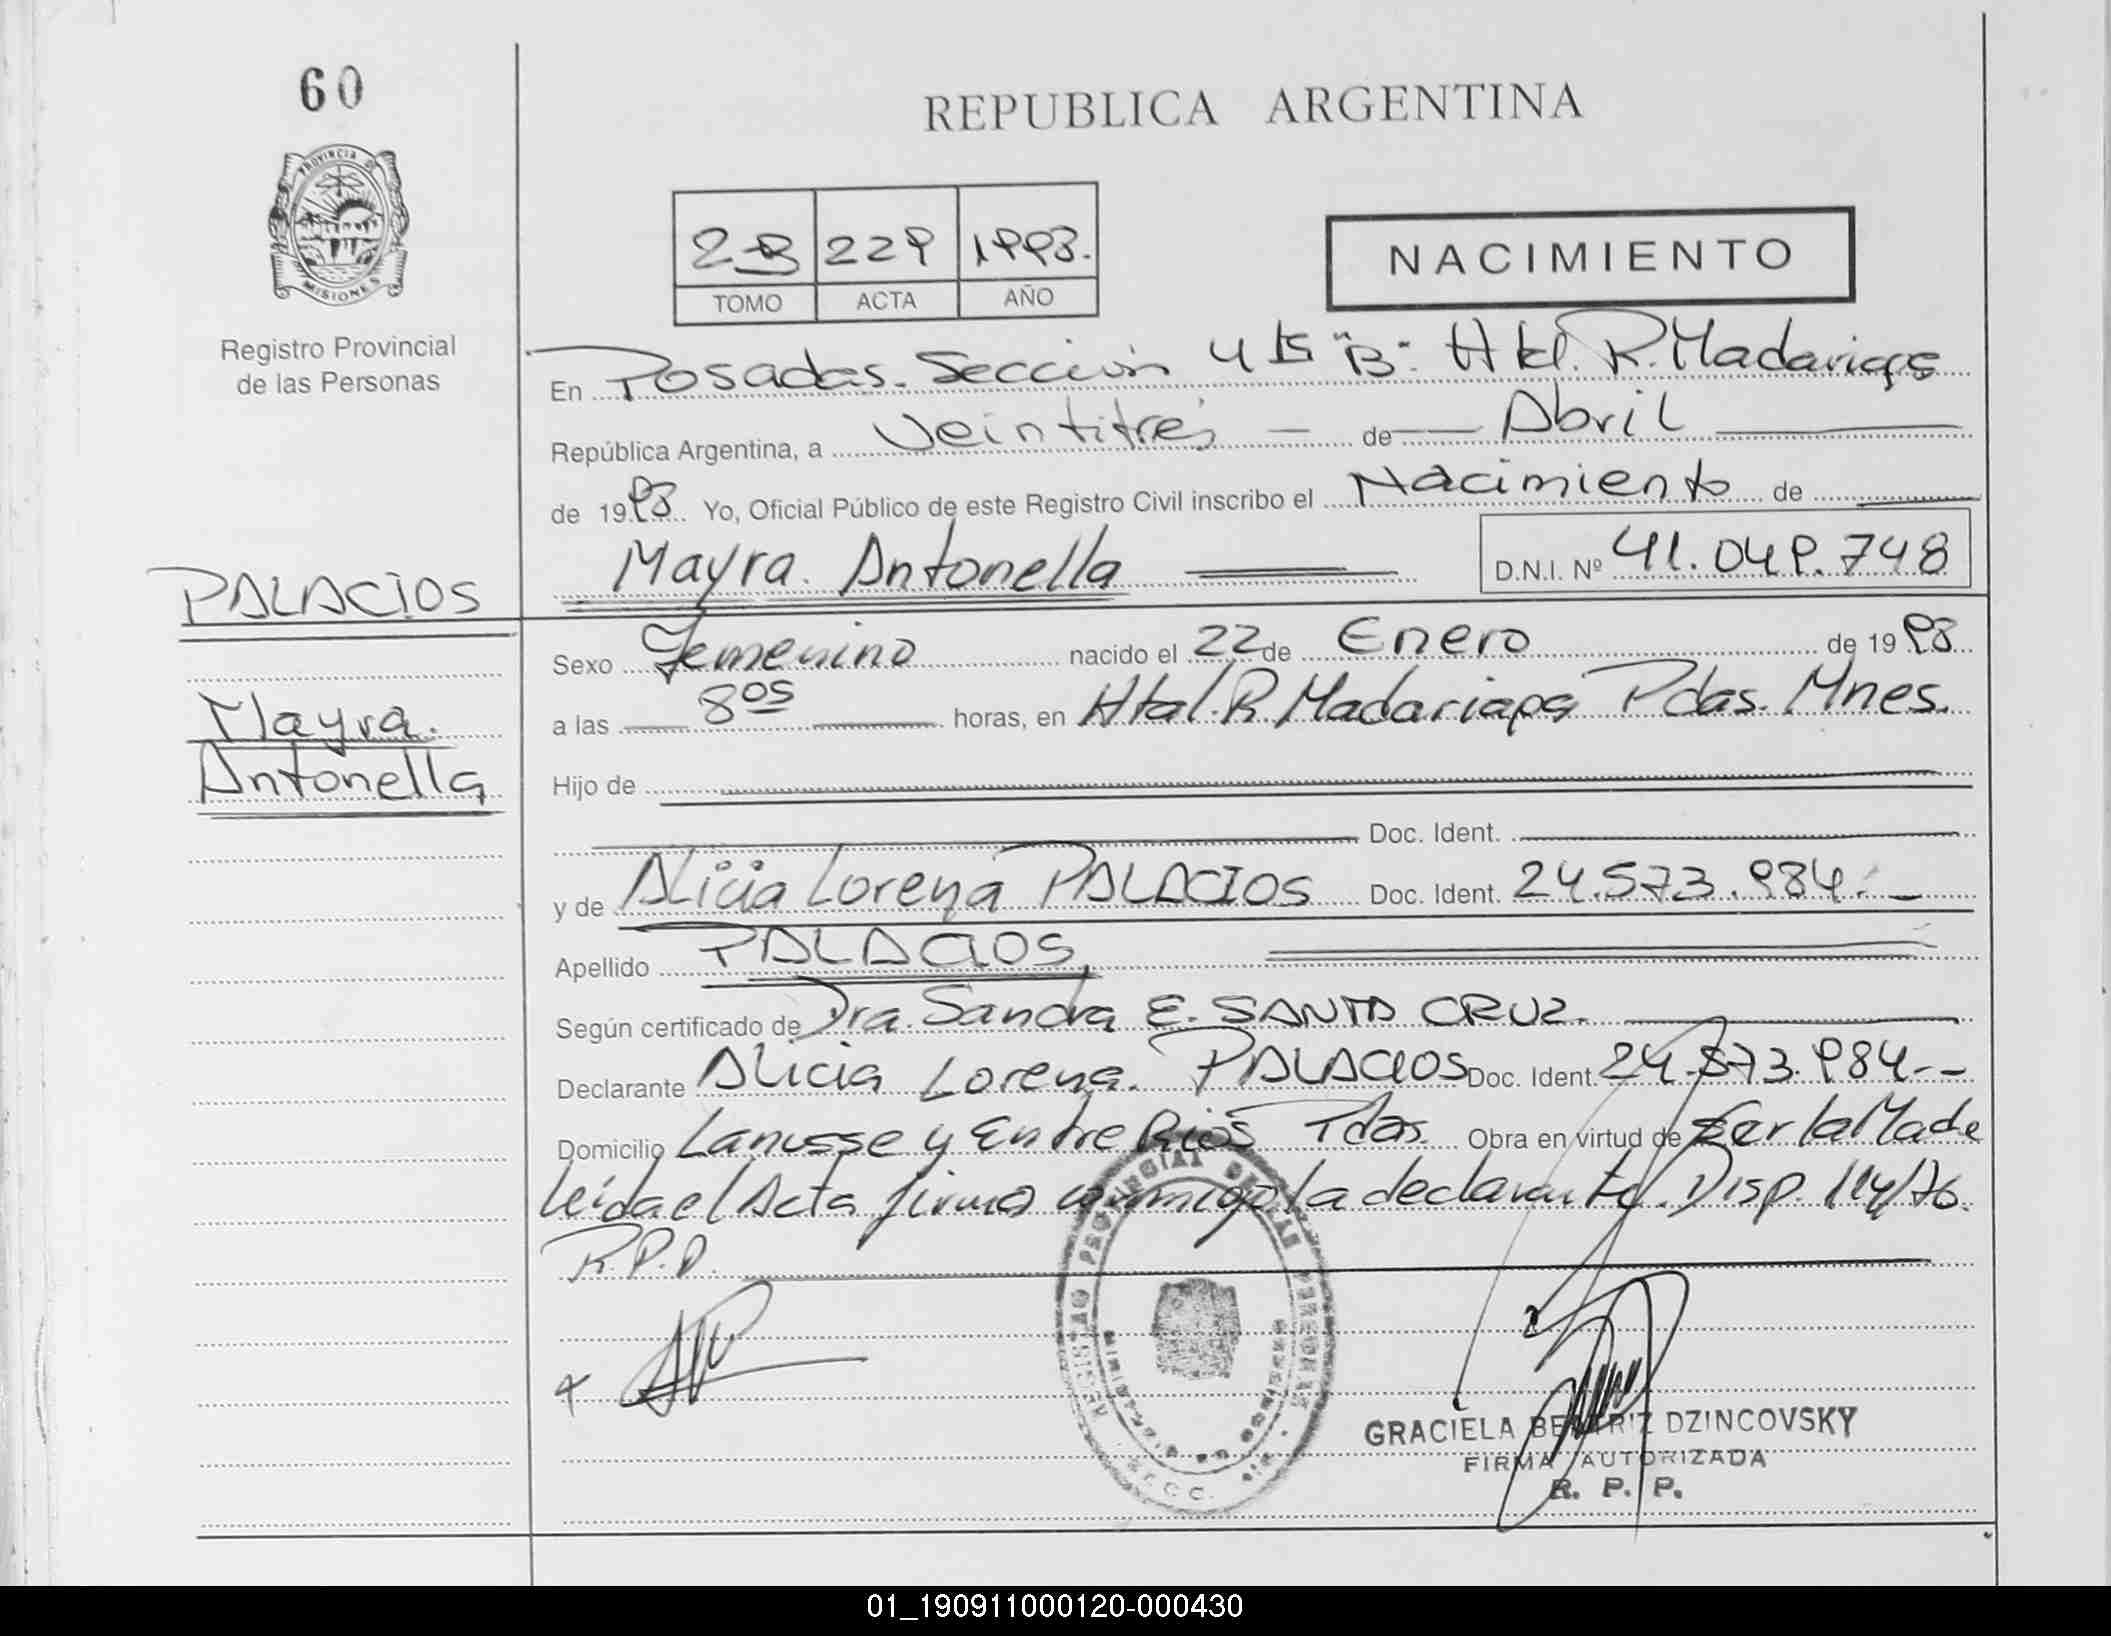 60
PROVINCIA D
MISIONES
Registro Provincial
de las Personas
REPUBLICA ARGENTINA
2-B 229 1998.
TOMO ACTA AÑO
NACIMIENTO
En Posadas. Sección 4ta "B". Htal. R. Madariaga
República Argentina, a Veintitrés — de — Abril
de 1998 Yo, Oficial Público de este Registro Civil inscribo el Nacimiento de
Mayra. Antonella D.N.I. Nº 41.049.748
PALACIOS
Mayra.
Antonella
Sexo Femenino nacido el 22 de Enero de 1998
a las 8 os horas, en Htal. R. Madariaga Pdas. Mnes.
Hijo de
Doc. Ident.
y de Alicia Lorena PALACIOS Doc. Ident. 24.573.984.-
Apellido PALACIOS
Según certificado de Dra. Sandra E. SANTA CRUZ.
Declarante Alicia Lorena. PALACIOS Doc. Ident. 24.573.984.--
Domicilio Lanusse y Entre Rios Pdas. Obra en virtud de Ser la Madre
leída el Acta firma conmigo la declarante. Disp. 114/76.
R.P.P.
GRACIELA BEATRIZ DZINCOVSKY
FIRMA AUTORIZADA
R. P. P.
01_190911000120-000430